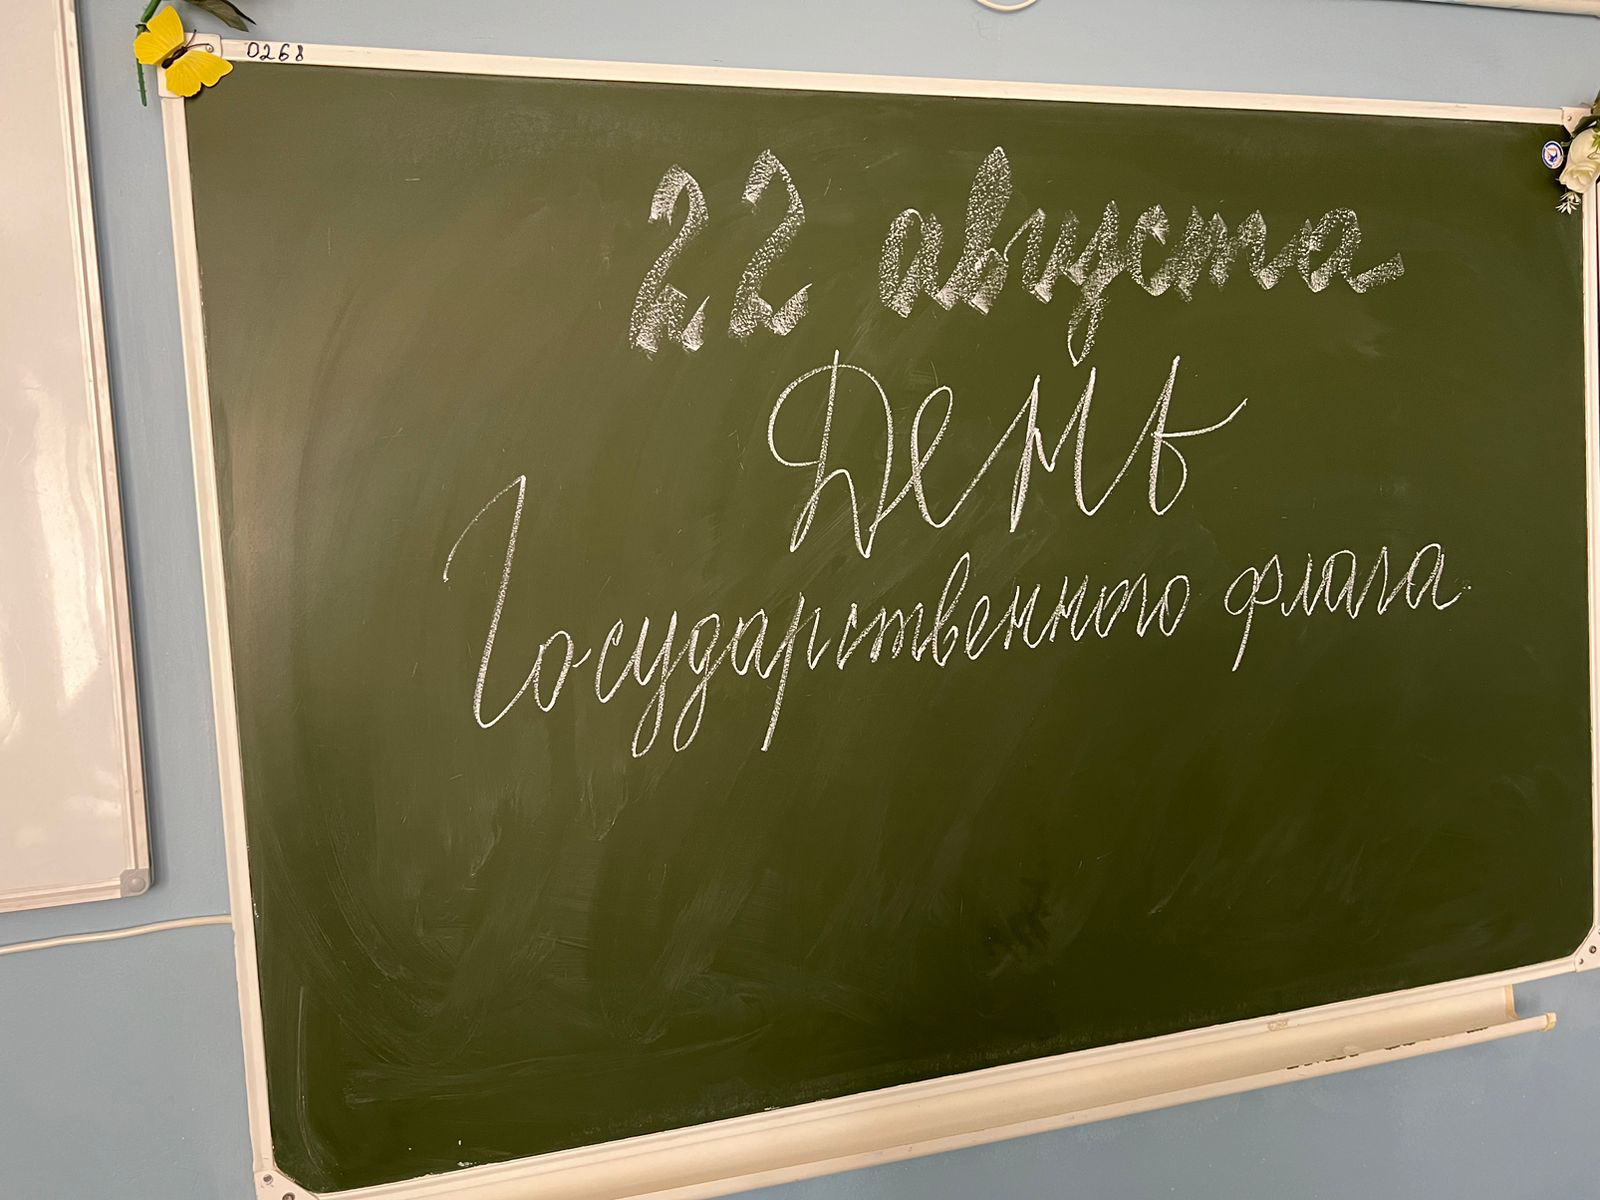 0268
22 августа
День
Государственного флага